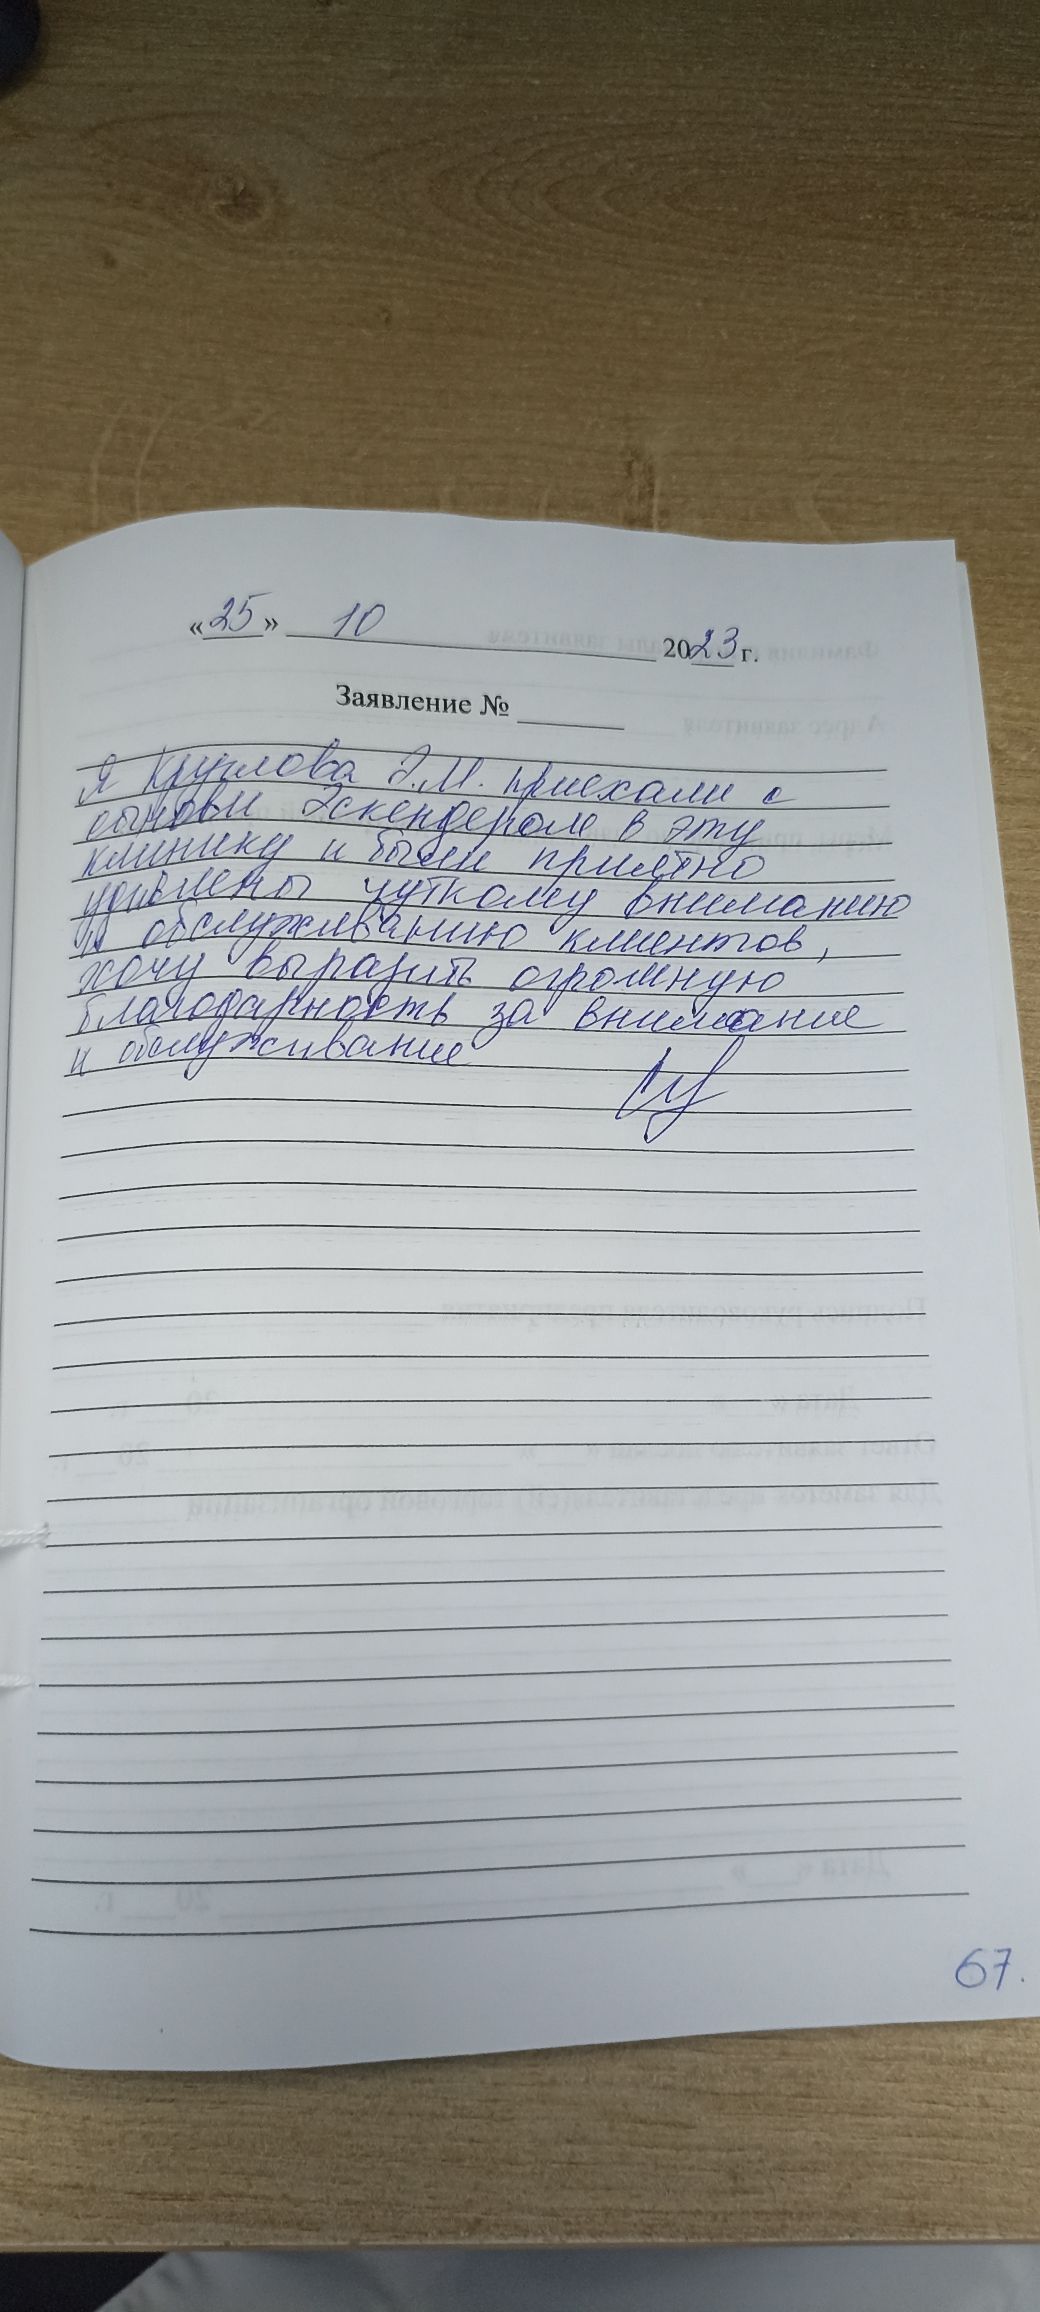 «25» 10 2023 г.
Заявление №
Я Круглова Э.М. приехали с
сыновьи Эскендером в эту
клинику и были приятно
удивлены чуткому вниманию
и обслуживанию клиентов,
хочу выразить огромную
благодарность за внимание
и обслуживание
67.